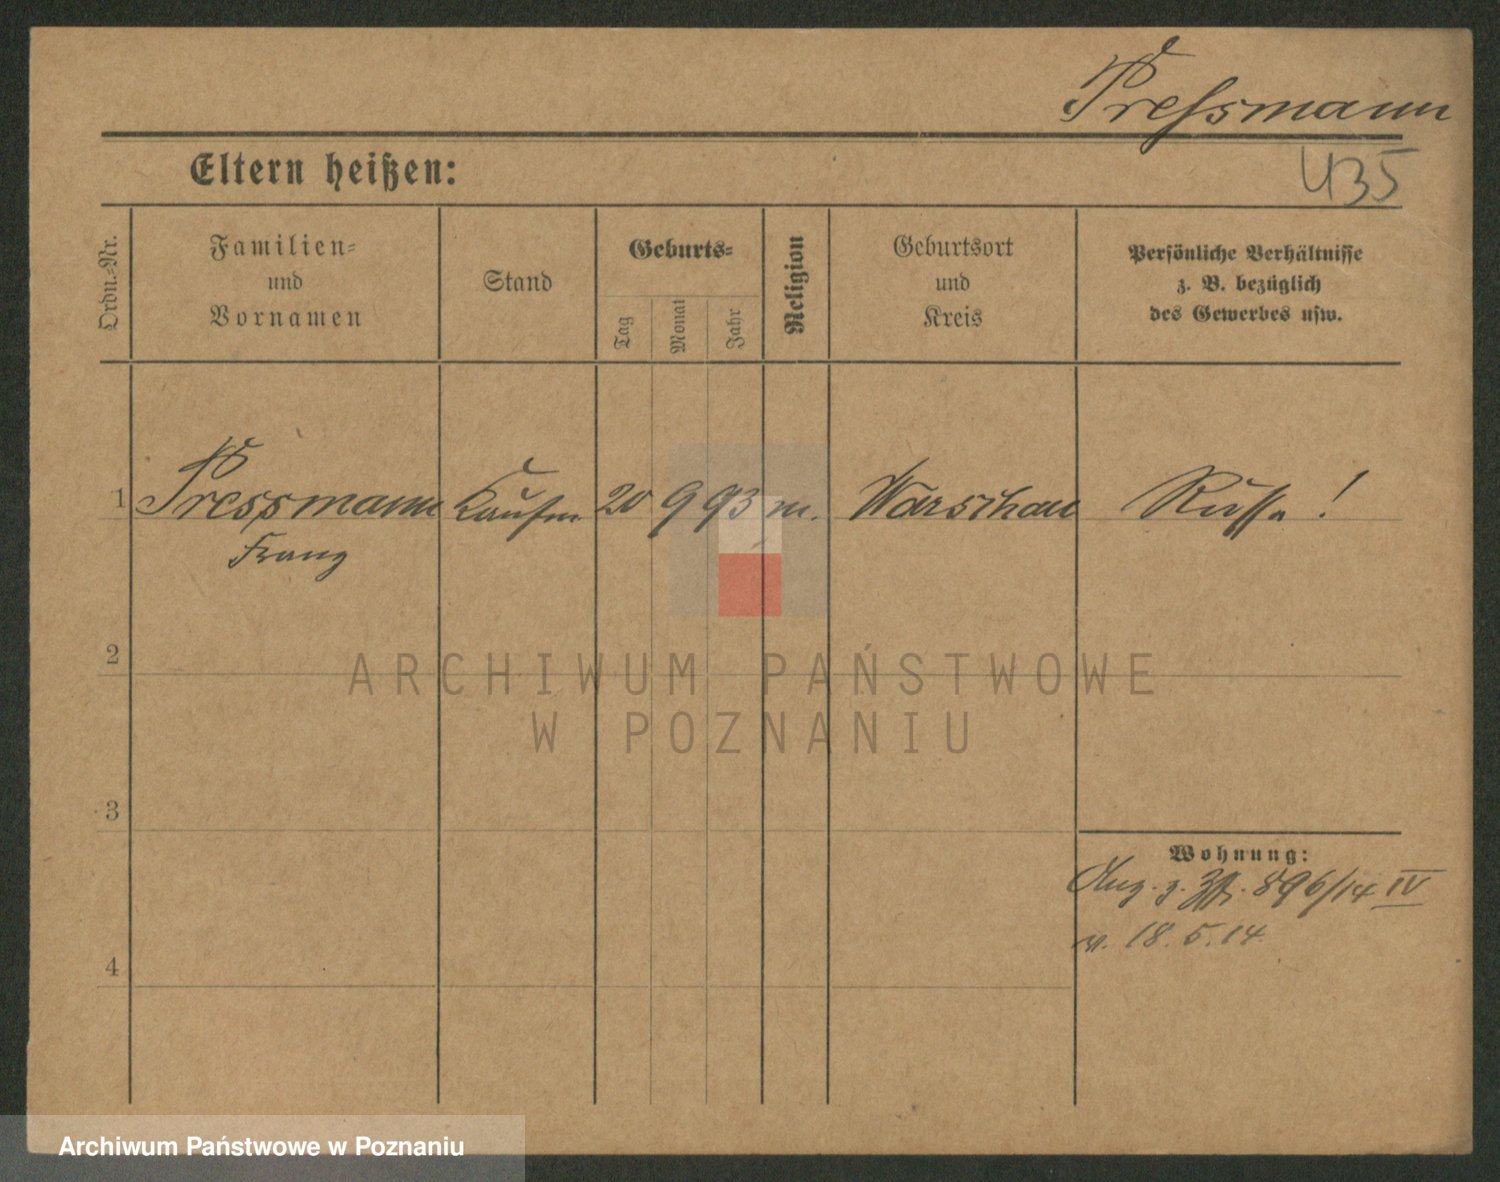 Preſsmann
435
Eltern heißen:
Ordn.=Nr.
Familien=
und
Vornamen
Stand
Geburts=
Tag
Monat
Jahr
Religion
Geburtsort
und
Kreis
Persönliche Verhältnisse
z. B. bezüglich
des Gewerbes usw.
1 Pressmann Kaufm. 20 9 93 m. Warschau Russe !
Franz
2
3
4
Wohnung:
896/14 IV
v. 18.5.14
ARCHIWUM PAŃSTWOWE
W POZNANIU
Archiwum Państwowe w Poznaniu